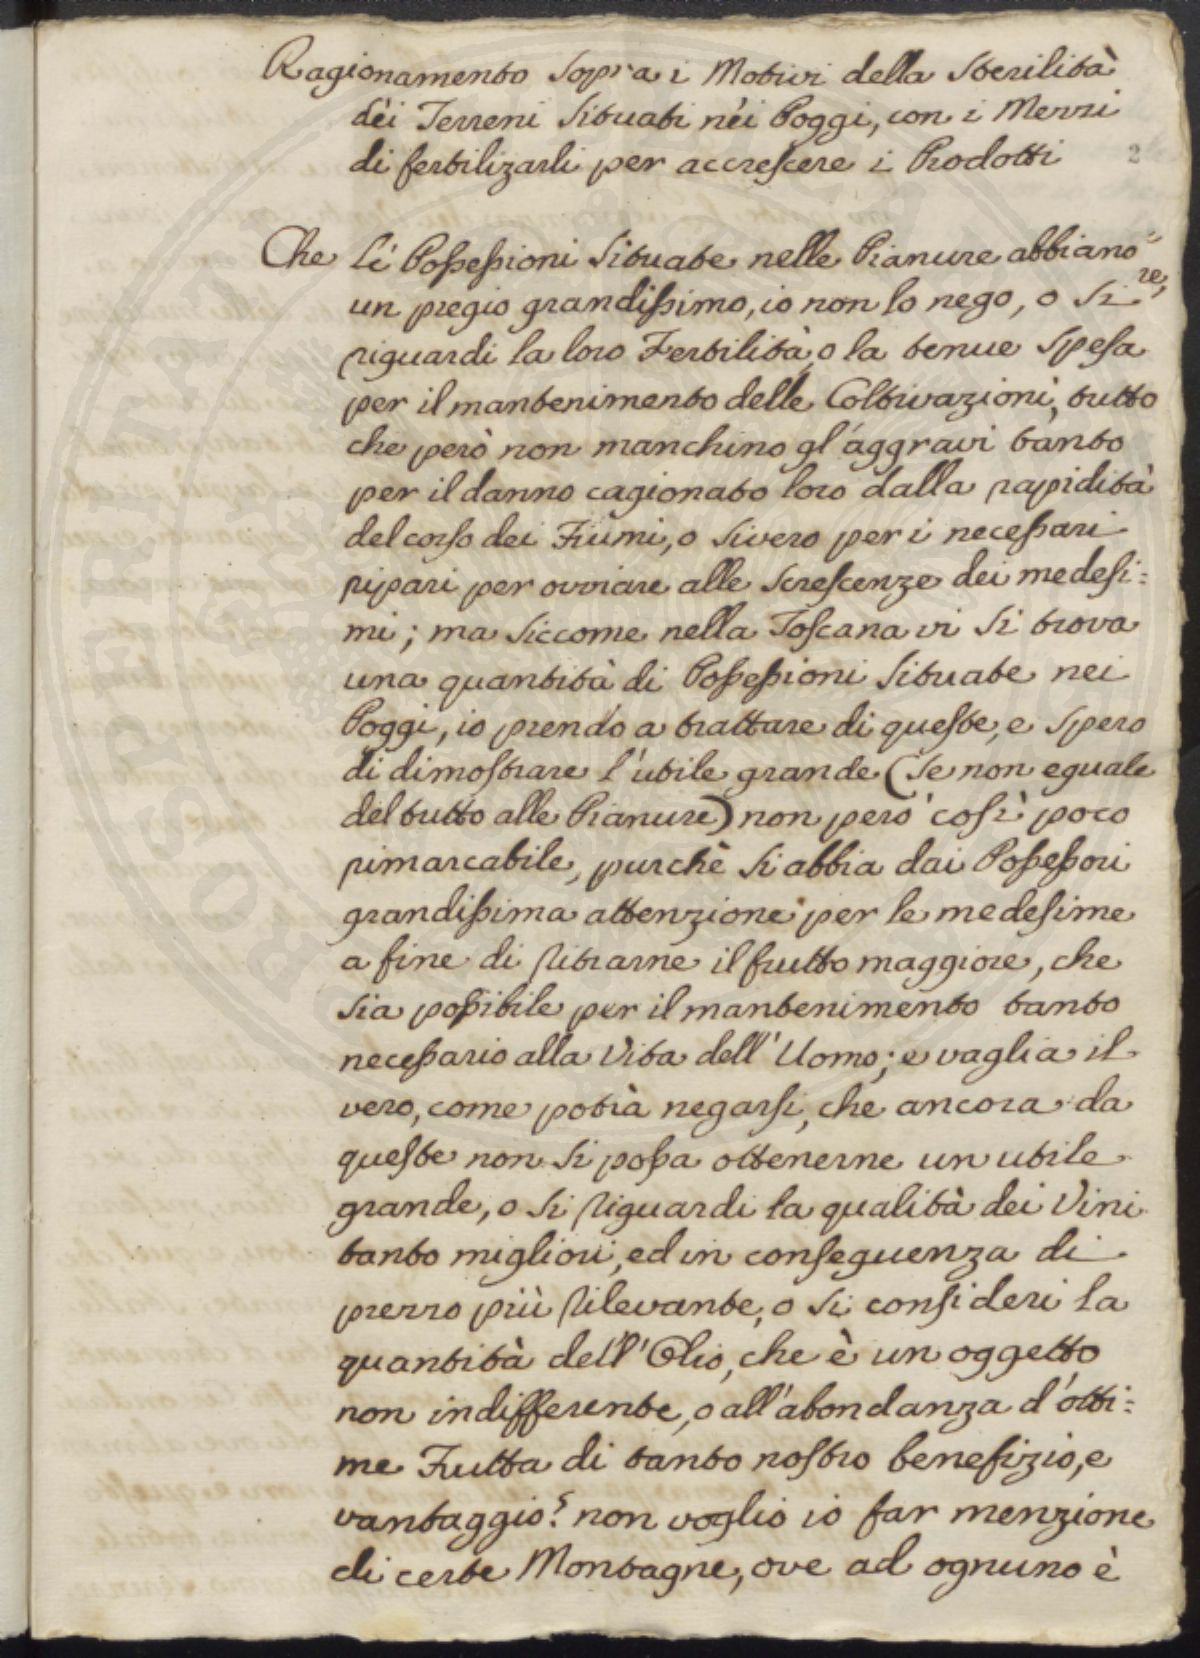 Ragionamento sopra i Motivi della Sterilità
dèi Terreni Situati nèi Poggi, con i Mezzi
di fertilizarli per accrescere i Prodotti
2
Che le Possessioni Situate nelle Pianure abbiano=
re,
un pregio grandissimo, io non lo nego, o si
riguardi la loro Fertilità, o la tenue spesa
per il mantenimento delle Coltivazioni, tutto
che però non manchino gl'aggravi tanto
per il danno cagionato loro dalla rapidità
del corso dei Fiumi, o sivero per i necessari
ripari per ovviare alle Screscenze dei medesi=
mi; ma siccome nella Toscana vi si trova
una quantità di Possessioni Situate nei
Poggi, io prendo a trattare di queste, e spero
di dimostrare l'utile grande (se non eguale
del tutto alle Pianure) non però così poco
rimarcabile, purchè si abbia dai Possessori
grandissima attenzione per le medesime
a fine di ritrarne il frutto maggiore, che
sia possibile per il mantenimento tanto
necessario alla Vita dell'Uomo; e vaglia il
vero, come potrà negarsi, che ancora da
queste non si possa ottenerne un utile
grande, o si riguardi la qualità dei Vini
tanto migliori, ed in conseguenza di
prezzo più rilevante, o si consideri la
quantità dell'Olio, che è un oggetto
non indifferente, o all'abondanza d'otti=
me Frutta di tanto nostro benefizio, e
vantaggio? non voglio io far menzione
di certe Montagne, ove ad ognuno è
PROSPERITATI